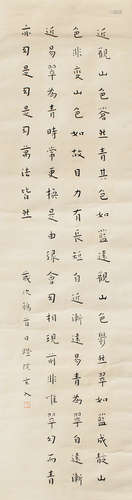 近觀山色蒼然青其色如藍遠觀山色鬱然翠如藍成靛山
色非變山色如故目力有長短自近漸遠易青為翠自遠漸
近易翠為青時常更換是由緣會幻相現前非唯翠幻而青
亦幻是幻是幻萬法皆然 歲次鶉首日燈院玄入